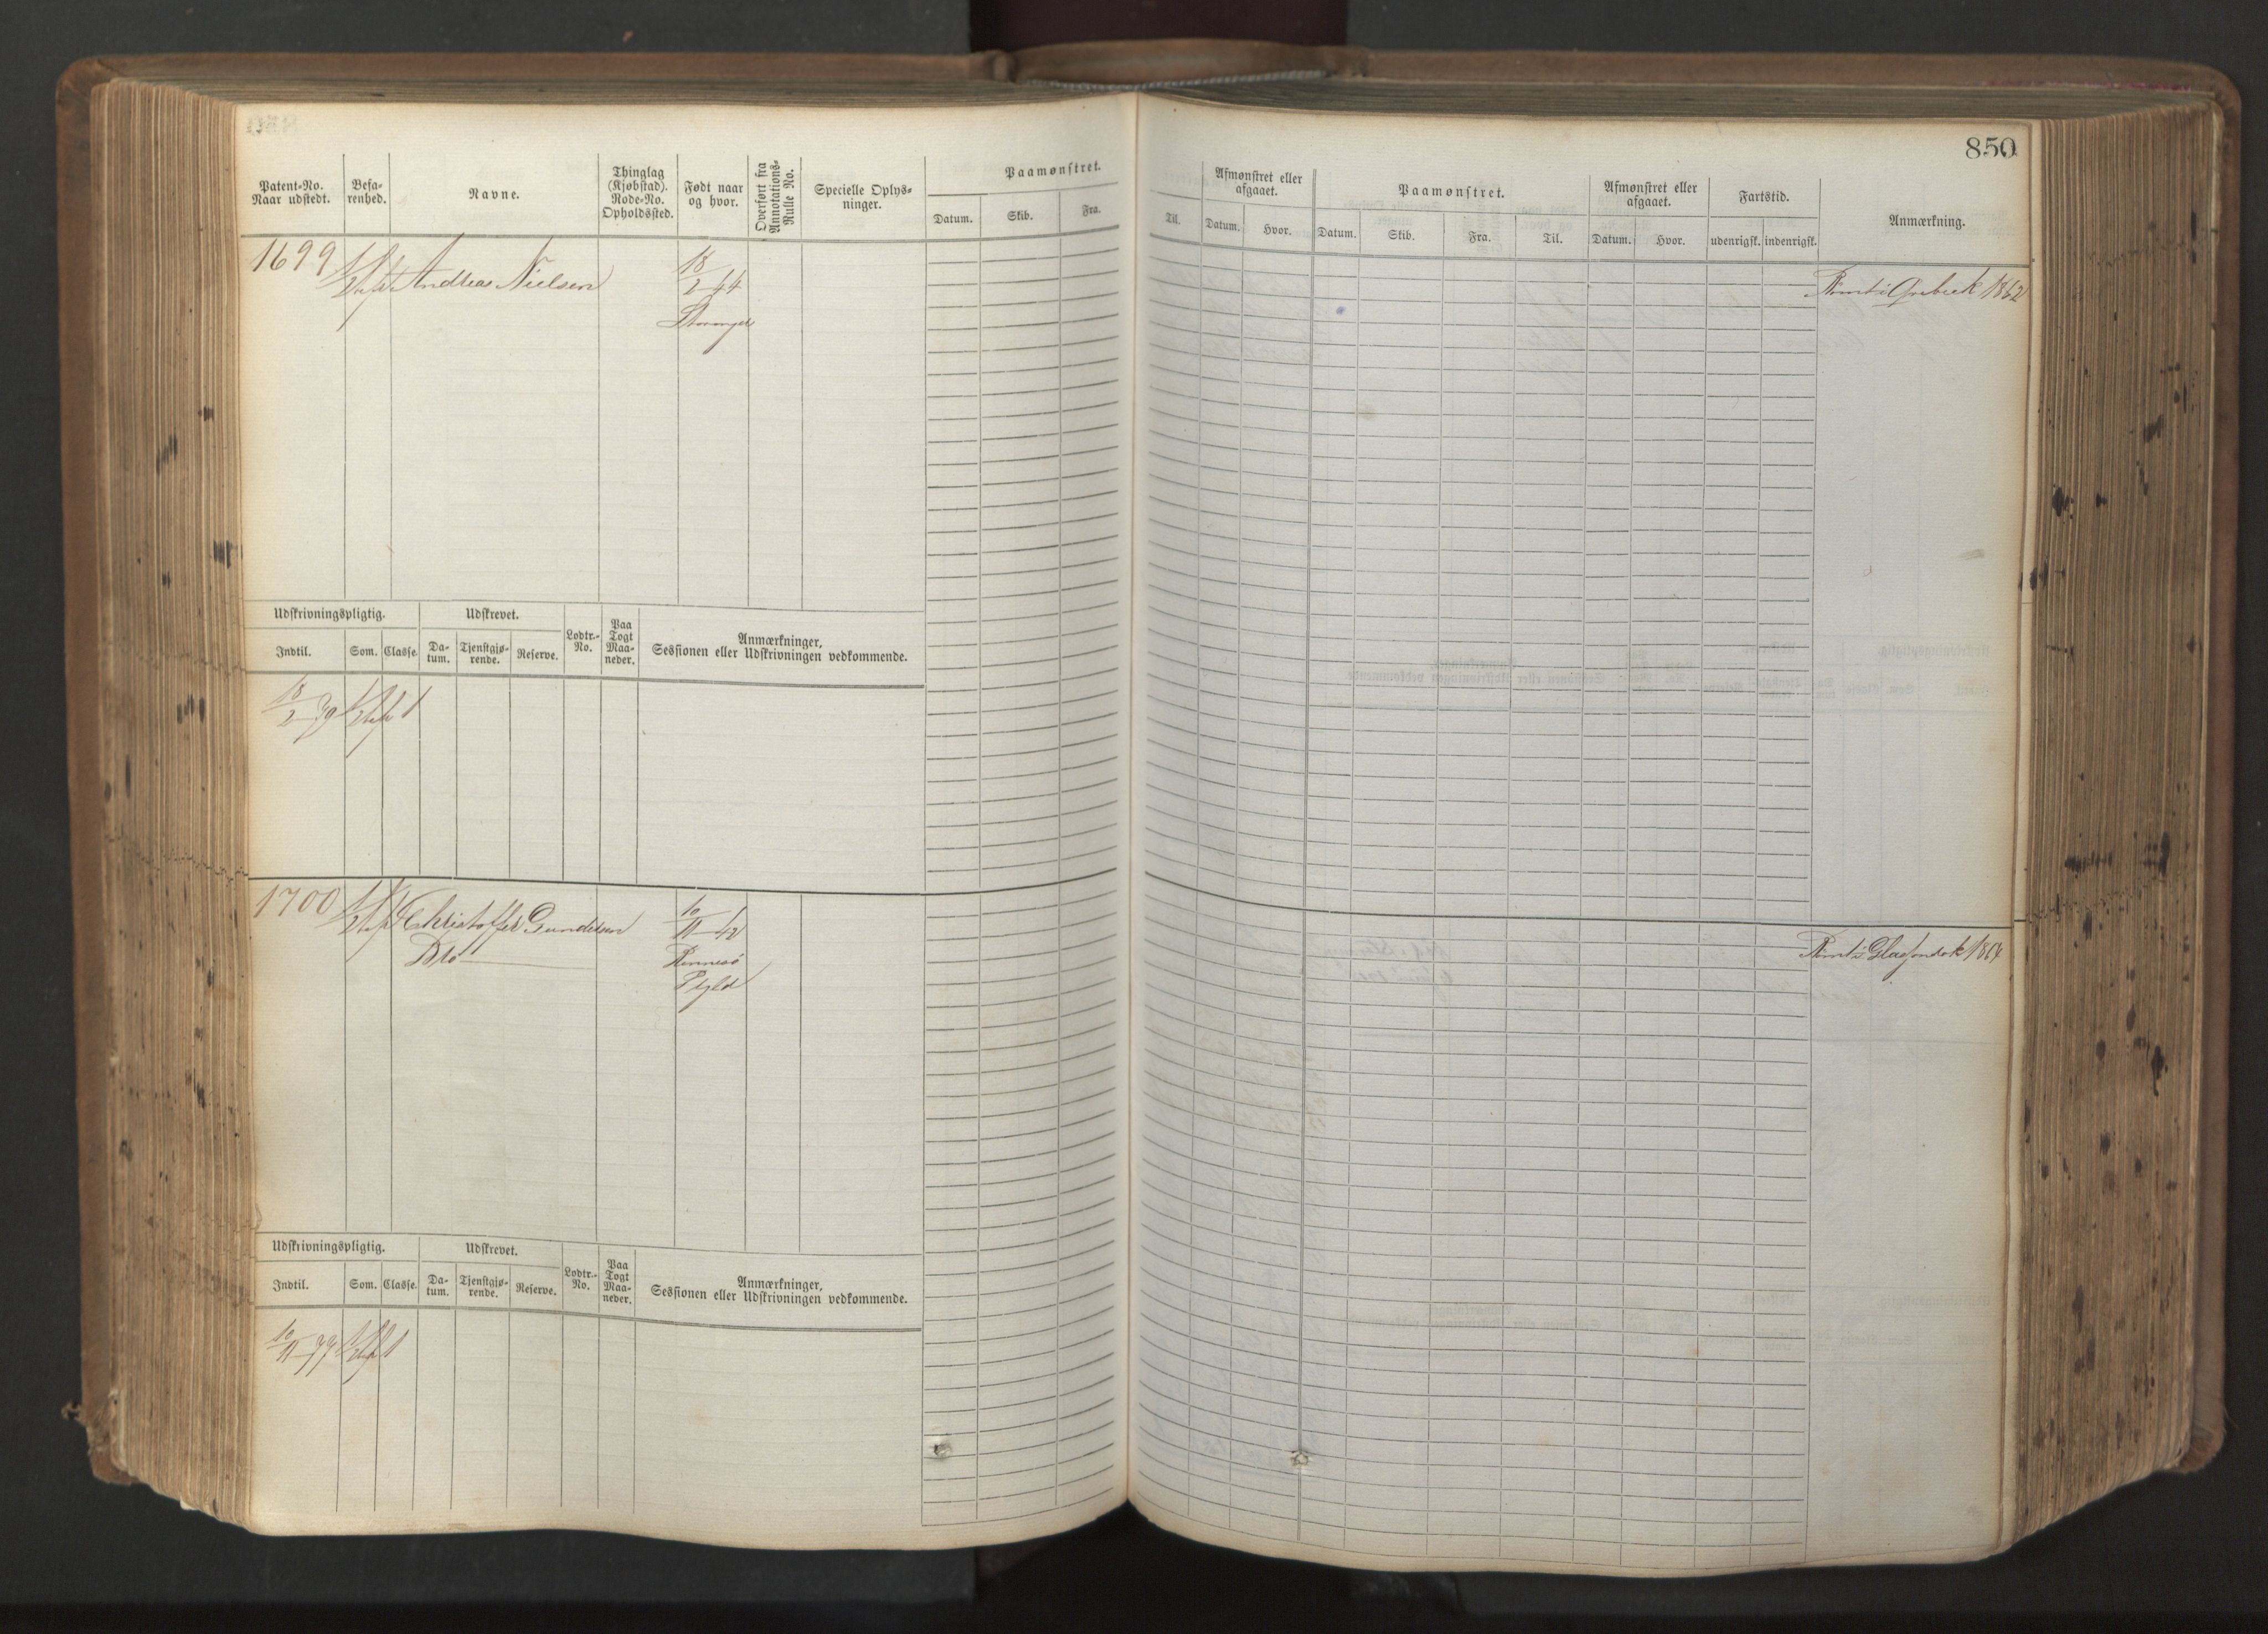 850
Patent-No.
Naar udstedt.
Befa-
renhed.
Navne.
Thinglag
(Kjøbstad).
Rode-No.
Opholdssted.
Født naar
og hvor.
Overført fra
Annotations-
Rulle No.
Specielle Oplys-
ninger.
Paamønstret.
Datum.
Skib.
Fra.
Til.
Afmønstret eller
afgaaet.
Datum.
Hvor.
Paamønstret.
Datum.
Skib.
Fra.
Til.
Afmønstret eller
afgaaet.
Datum.
Hvor.
Fartstid.
udenrigsk.
indenrigsk.
Anmærkning.
1699
Andreas Nielsen
18
2 44
Stavanger
Rømt i Qvebeck 1862
Udskrivningspligtig.
Udskrevet.
Lodtr.-
No.
Paa
Togt
Maa-
neder.
Anmærkninger,
Sessionen eller Udskrivningen vedkommende.
Indtil.
Som.
Classe.
Da-
tum.
Tjenstgjø-
rende.
Reserve.
18
2 79
1
1700
Christoffer
10
11 42
Rennesö
Pgld
Rømt i 1864
Udskrivningspligtig.
Udskrevet.
Lodtr.-
No.
Paa
Togt
Maa-
neder.
Anmærkninger,
Sessionen eller Udskrivningen vedkommende.
Indtil.
Som.
Classe.
Da-
tum.
Tjenstgjø-
rende.
Reserve.
10
11 77
1